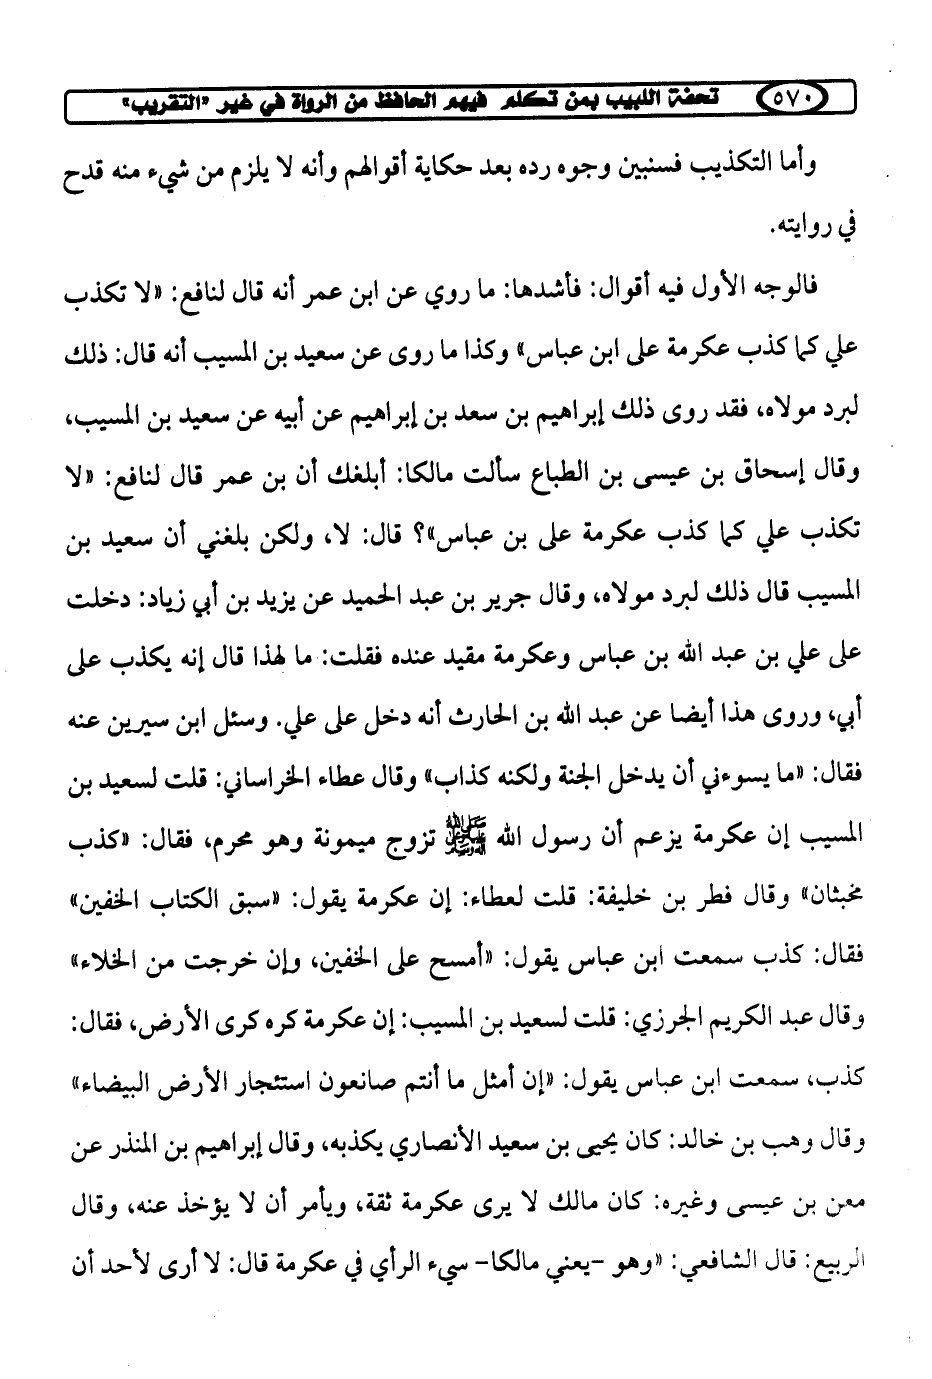 ٥٧٠ تحفة اللبيب بمن تكلم فيهم الحافظ من الرواة في غير «التقريب»
وأما التكذيب فسنبين وجوه رده بعد حكاية أقوالهم وأنه لا يلزم من شيء منه قدح
في روايته.
فالوجه الأول فيه أقوال: فأشدها: ما روي عن ابن عمر أنه قال لنافع: «لا تكذب
علي كما كذب عكرمة على ابن عباس» وكذا ما روى عن سعيد بن المسيب أنه قال: ذلك
لبرد مولاه، فقد روى ذلك إبراهيم بن سعد بن إبراهيم عن أبيه عن سعيد بن المسيب،
وقال إسحاق بن عيسى بن الطباع سألت مالكا: أبلغك أن بن عمر قال لنافع: «لا
تكذب علي كما كذب عكرمة على بن عباس»؟ قال: لا، ولكن بلغني أن سعيد بن
المسيب قال ذلك لبرد مولاه، وقال جرير بن عبد الحميد عن يزيد بن أبي زياد: دخلت
على علي بن عبد الله بن عباس وعكرمة مقيد عنده فقلت: ما لهذا قال إنه يكذب على
أبي، وروى هذا أيضا عن عبد الله بن الحارث أنه دخل على علي. وسئل ابن سيرين عنه
فقال: «ما يسوءني أن يدخل الجنة ولكنه كذاب» وقال عطاء الخراساني: قلت لسعيد بن
المسيب إن عكرمة يزعم أن رسول الله ﷺ تزوج ميمونة وهو محرم، فقال: «كذب
مخبثان» وقال فطر بن خليفة: قلت لعطاء: إن عكرمة يقول: «سبق الكتاب الخفين»
فقال: كذب سمعت ابن عباس يقول: «أمسح على الخفين، وإن خرجت من الخلاء»
وقال عبد الكريم الجرزي: قلت لسعيد بن المسيب: إن عكرمة كره كرى الأرض، فقال:
كذب، سمعت ابن عباس يقول: «إن أمثل ما أنتم صانعون استئجار الأرض البيضاء»
وقال وهب بن خالد: كان يحيى بن سعيد الأنصاري يكذبه، وقال إبراهيم بن المنذر عن
معن بن عيسى وغيره: كان مالك لا يرى عكرمة ثقة، ويأمر أن لا يؤخذ عنه، وقال
الربيع: قال الشافعي: «وهو -يعني مالكا- سيء الرأي في عكرمة قال: لا أرى لأحد أن